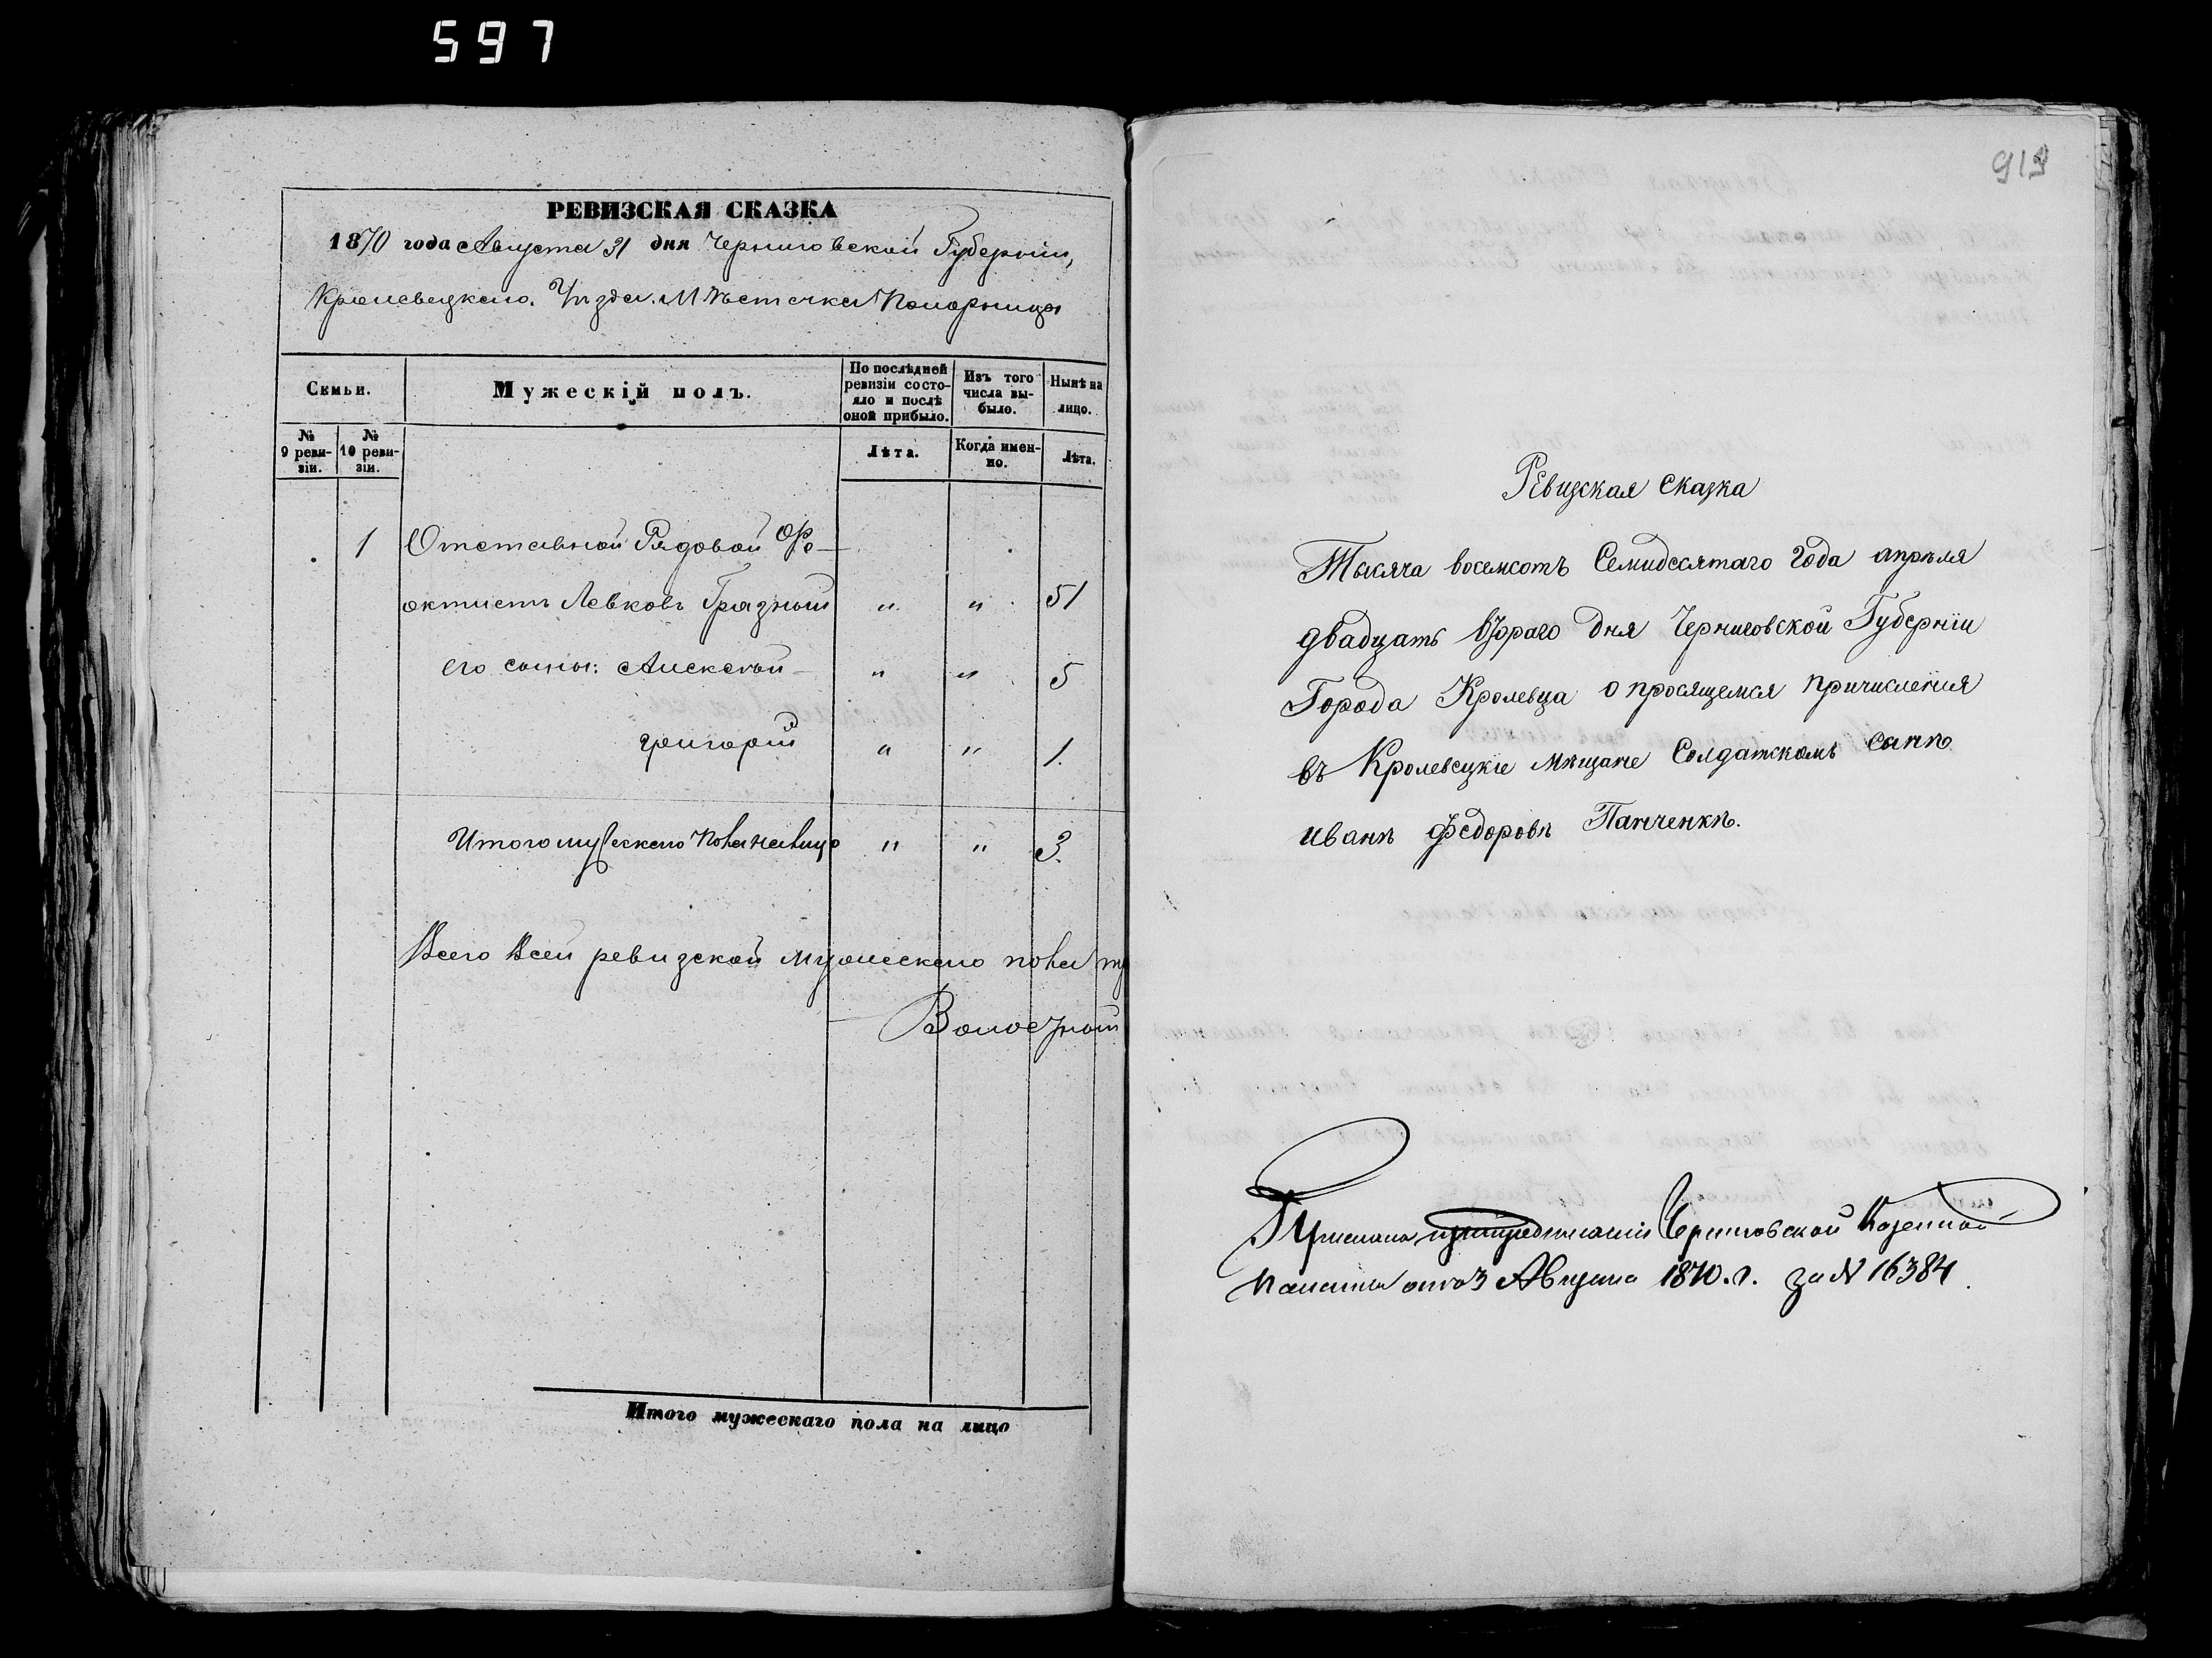 597
РЕВИЗСКАЯ СКАЗКА
1870 года Августа 31 дня Черниговской Губерніи,
Кролевецкаго Уѣзда. Мѣстечка Понорницы
Семьи.
Мужескій полъ.
По послѣдней ревизіи состояло и послѣ оной прибыло.
Изъ того числа выбыло.
Нынѣ на лицо.
№ 9 ревизіи.
№ 10 ревизіи.
Лѣта.
Когда именно.
Лѣта.
1 Отставной Рядовой Фе-
октистъ Левковъ Грязный " " 51
его сыны: Алексѣй " " 5
Григорій " " 1.
Итого мужескаго пола на лицо " " 3.
Всего всей ревизской мужескаго пола
Итого мужескаго пола на лицо
919
Ревизская Сказка
Тысяча восемсотъ Семидесятаго Года апрѣля
двадцать втораго дня Черниговской Губерніи
Города Кролевца о просящемся причисленія
въ Кролевецкіе мѣщане Солдатскомъ сынѣ
Иванѣ Федоровѣ Панченкѣ.
Черниговской Казенной
Палаты отъ 3 Августа 1870. г. за N 16384.